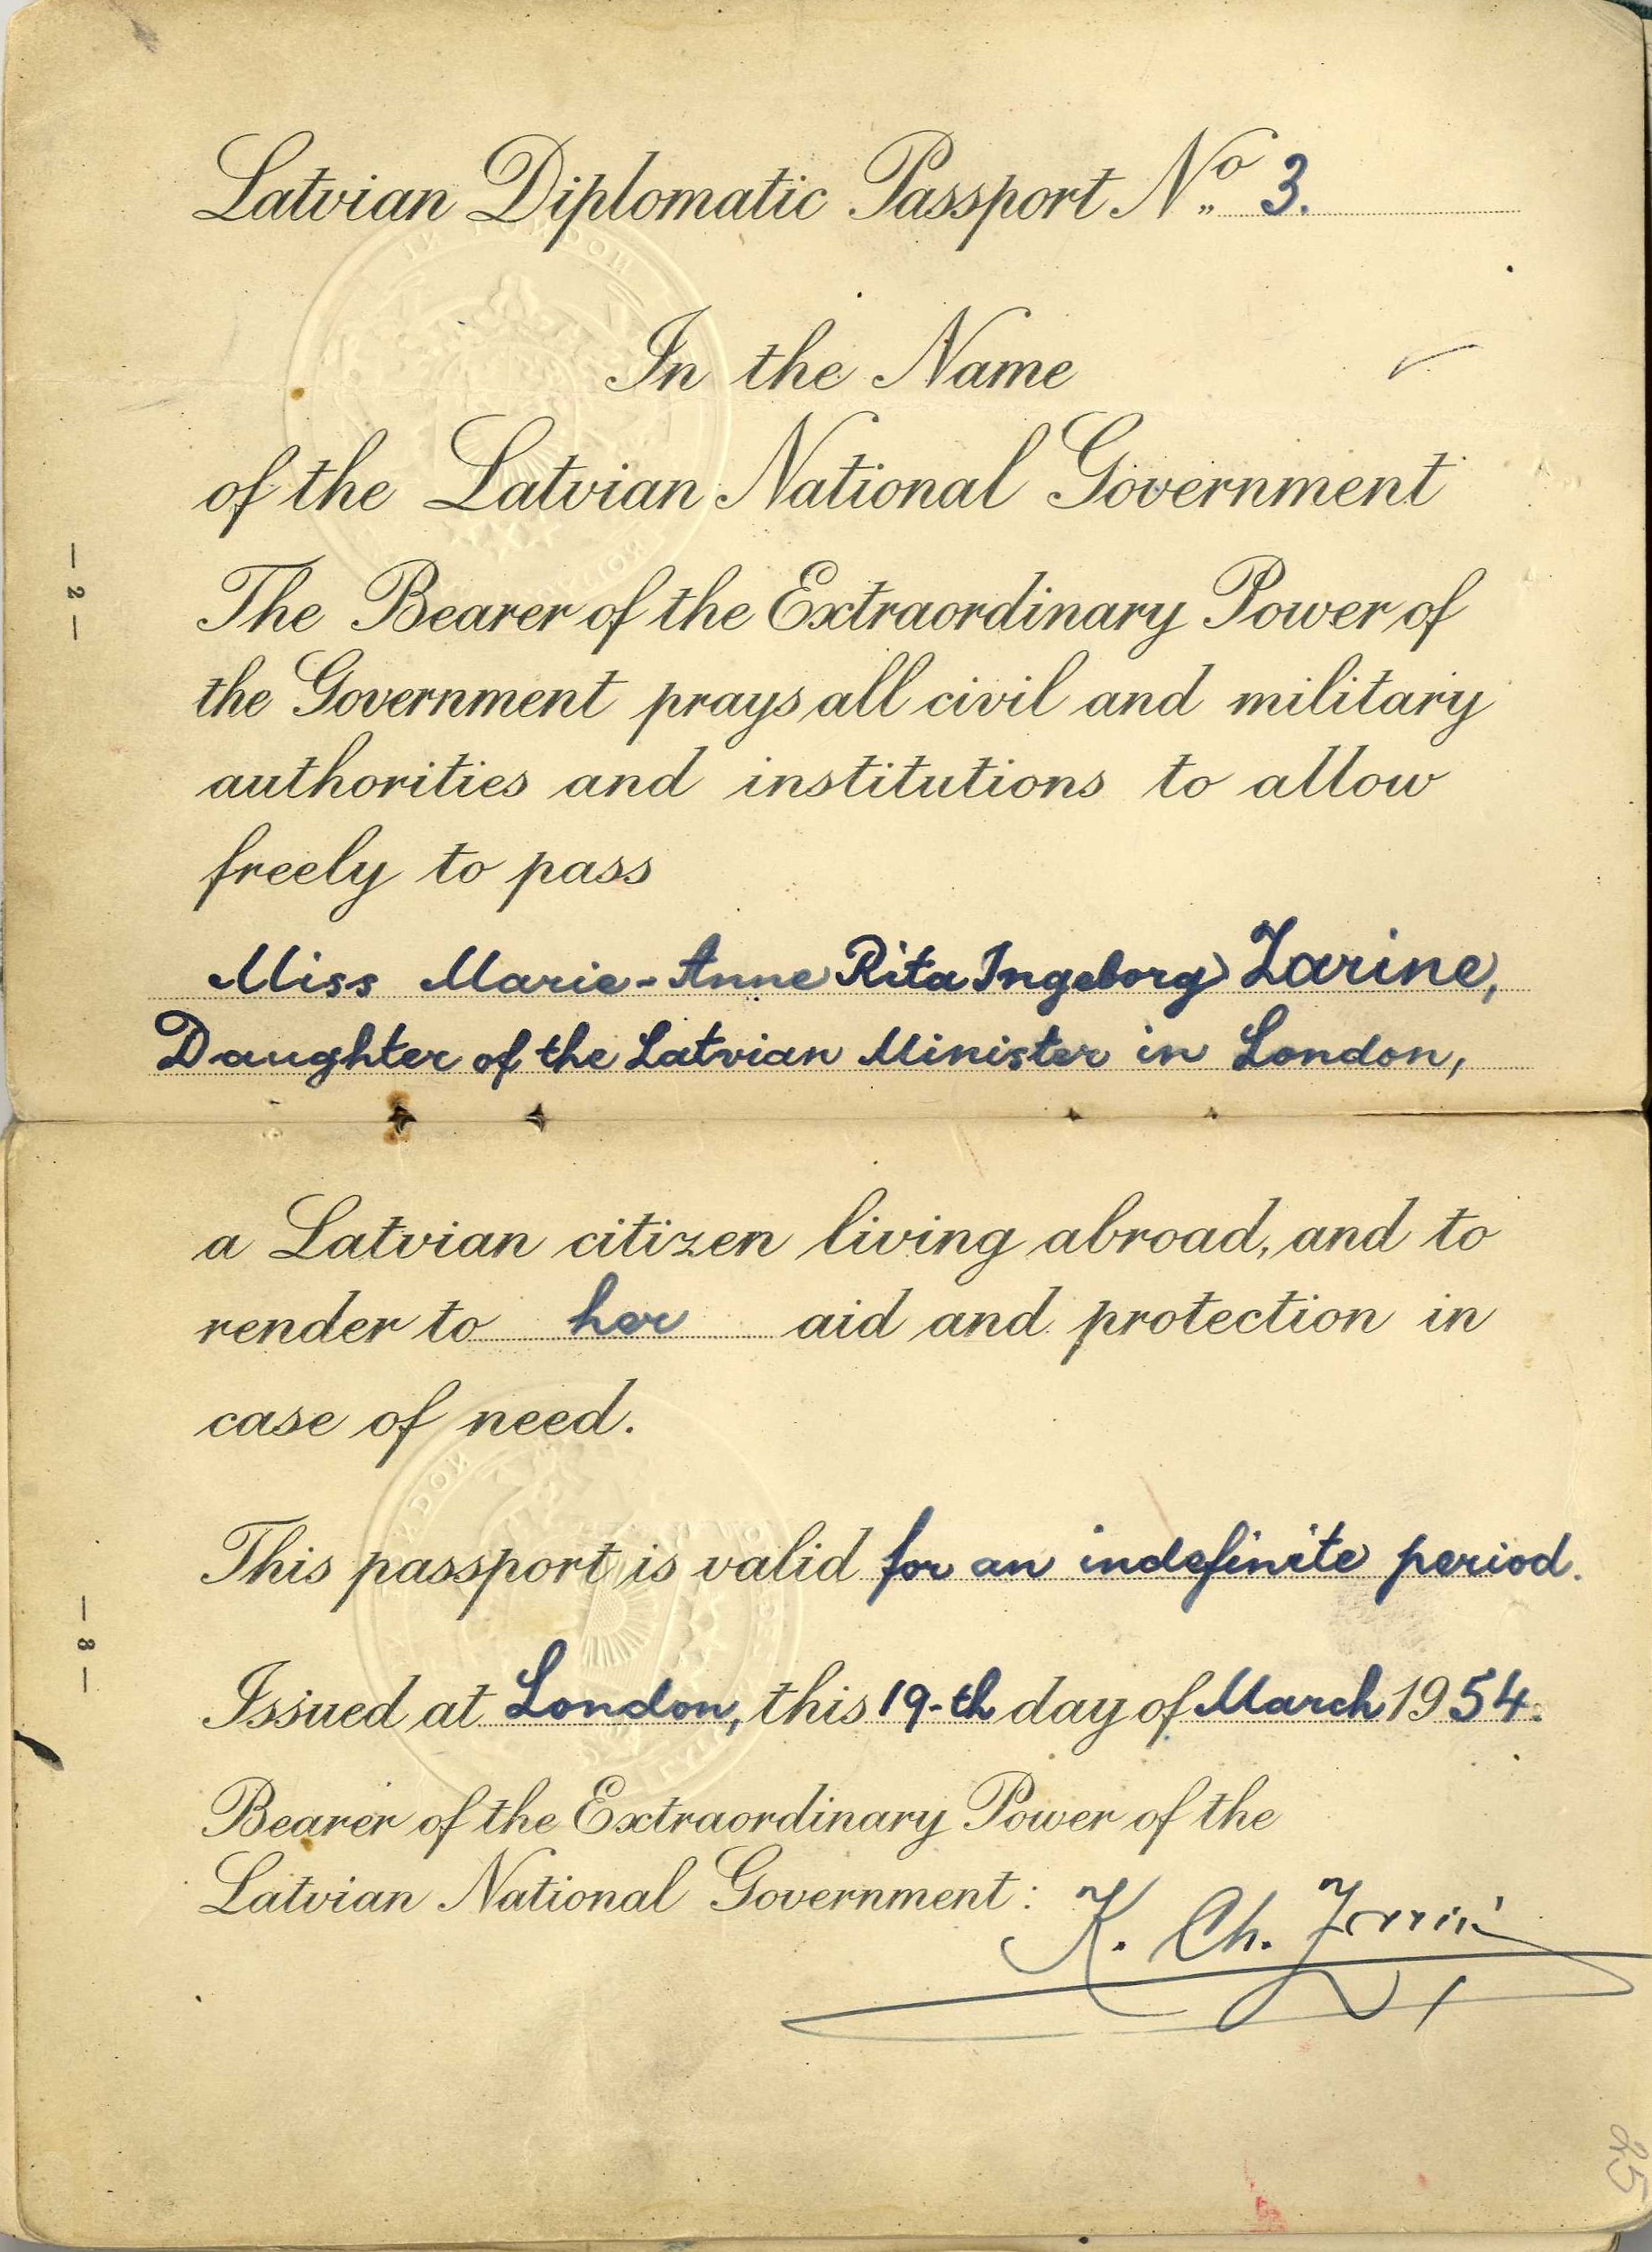 Latvian Diplomatic Passport No 3.
In the Name
of the Latvian National Government
The Bearer of the Extraordinary Power of
the Government prays all civil and military
authorities and institutions to allow
freely to pass
Miss Marie-Anne Rita Ingeborg Zarine,
Daughter of the Latvian Minister in London,
— 2 —
a Latvian citizen living abroad, and to
render to her aid and protection in
case of need.
This passport is valid for an indefinite period.
Issued at London, this 19-th day of March 1954.
Bearer of the Extraordinary Power of the
Latvian National Government:
K. Ch. Zarine
— 3 —
25